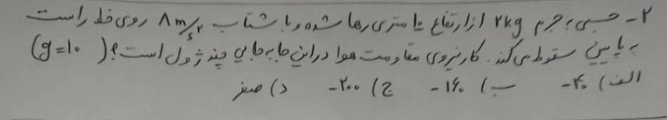 ۲- جسمی به جرم ۲kg از ارتفاع ۱۰ متری رها شده و با شتاب ۸m/s² روی خط راست
به پایین سقوط می‌کند. کار نیروی مقاومت هوا در این جابه‌جایی چند ژول است؟ (g=۱۰)
الف) ۴۰- ب) ۱۶۰- ج) ۲۰۰- د) صفر